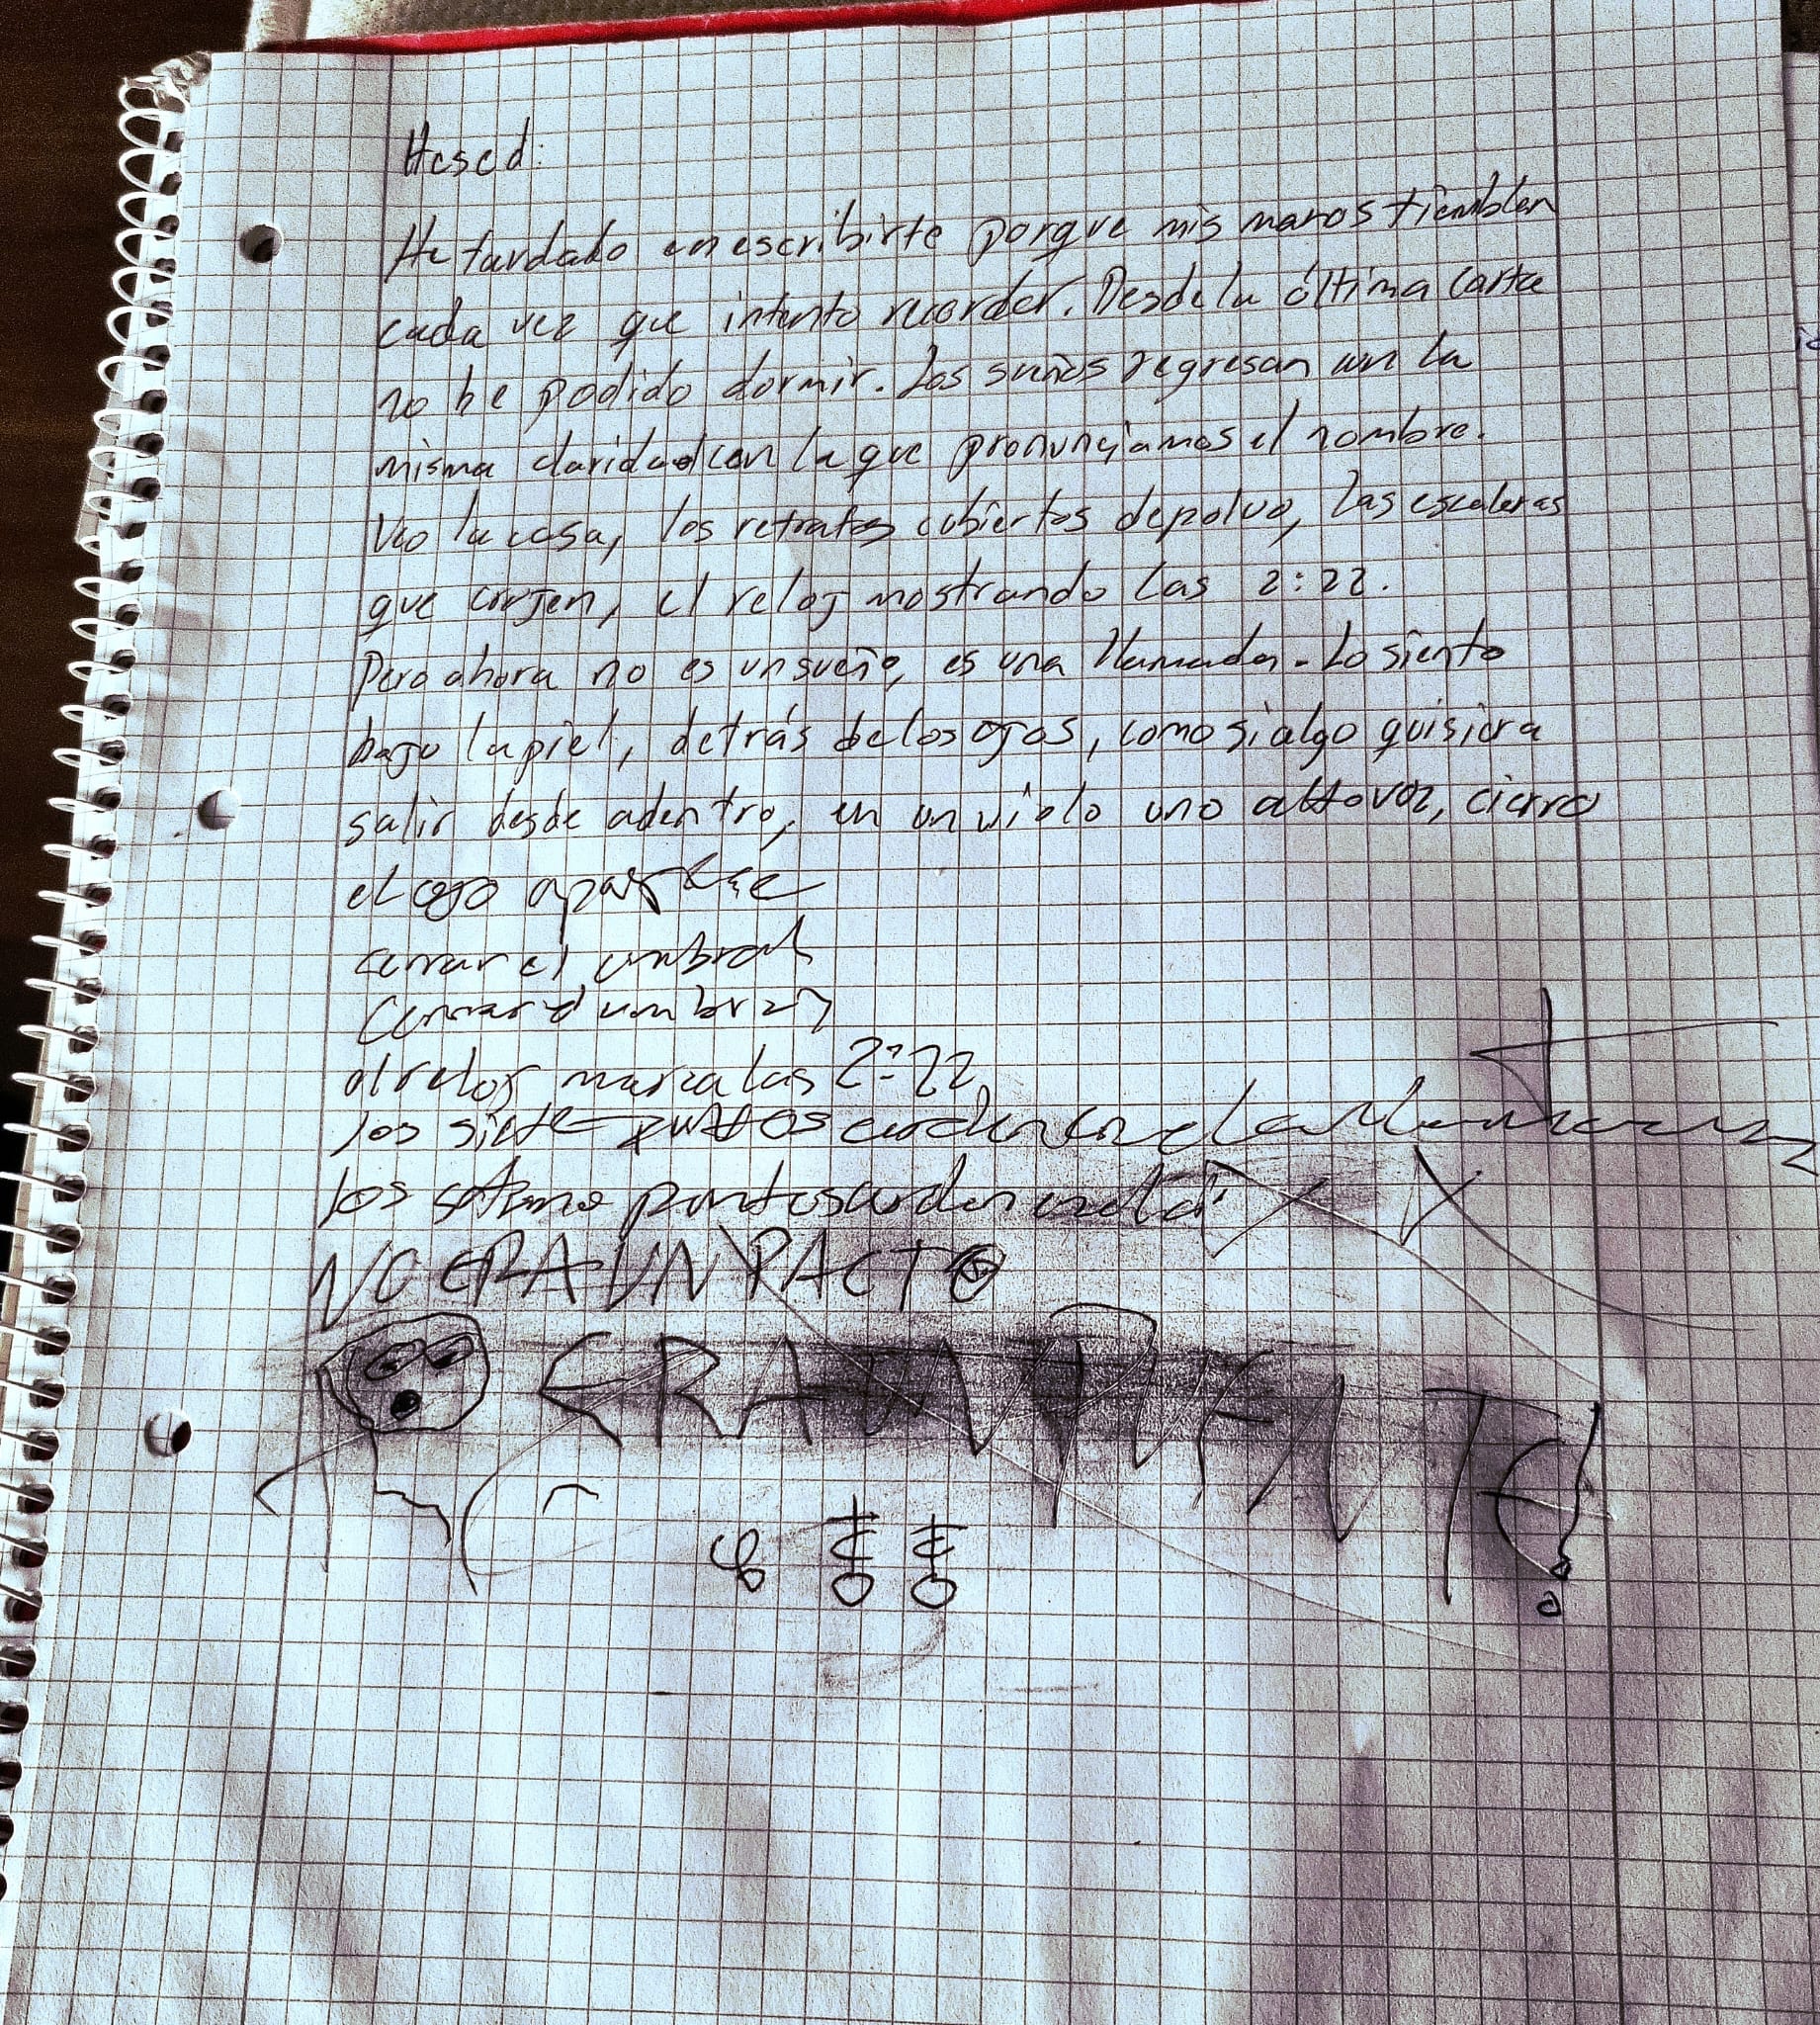 Hesed:
He tardado en escribirte porque mis manos tiemblan
cada vez que intento recordar. Desde la última carta
no he podido dormir. Los sueños regresan con la
misma claridad con la que pronunciamos el nombre.
Veo la casa, los retratos cubiertos de polvo, las escaleras
que crujen, el reloj mostrando las 2:22.
Pero ahora no es un sueño, es una llamada. Lo siento
bajo la piel, detrás de los ojos, como si algo quisiera
salir desde adentro, en un uno altavoz, cierro
el ojo aparece
cerrar el umbral
cerrar el umbral
el reloj marca las 2:22
los siete puntos arden en la
los puntos arden en la
NO ERA UN PACTO
ERA UN PUENTE!